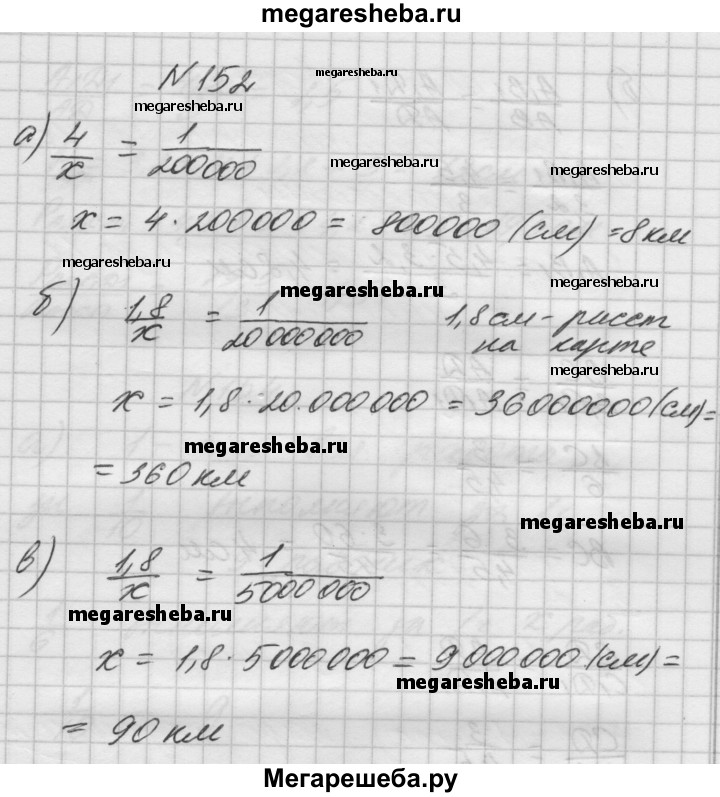 megaresheba.ru
N 152 megaresheba.ru
megaresheba.ru
а) 4/x = 1/200000
megaresheba.ru
megaresheba.ru
x = 4·200000 = 800000 (см) = 8 км
megaresheba.ru
megaresheba.ru
megaresheba.ru
б) 1,8/x = 1/20 000 000 1,8 см - расст
на карте
megaresheba.ru
x = 1,8·20.000 000 = 36000000 (см) =
megaresheba.ru
= 360 км
megaresheba.ru
в) 1,8/x = 1/5000 000
megaresheba.ru
x = 1,8·5000000 = 9 000 000 (см) =
megaresheba.ru
= 90 км
Мегарешеба.ру